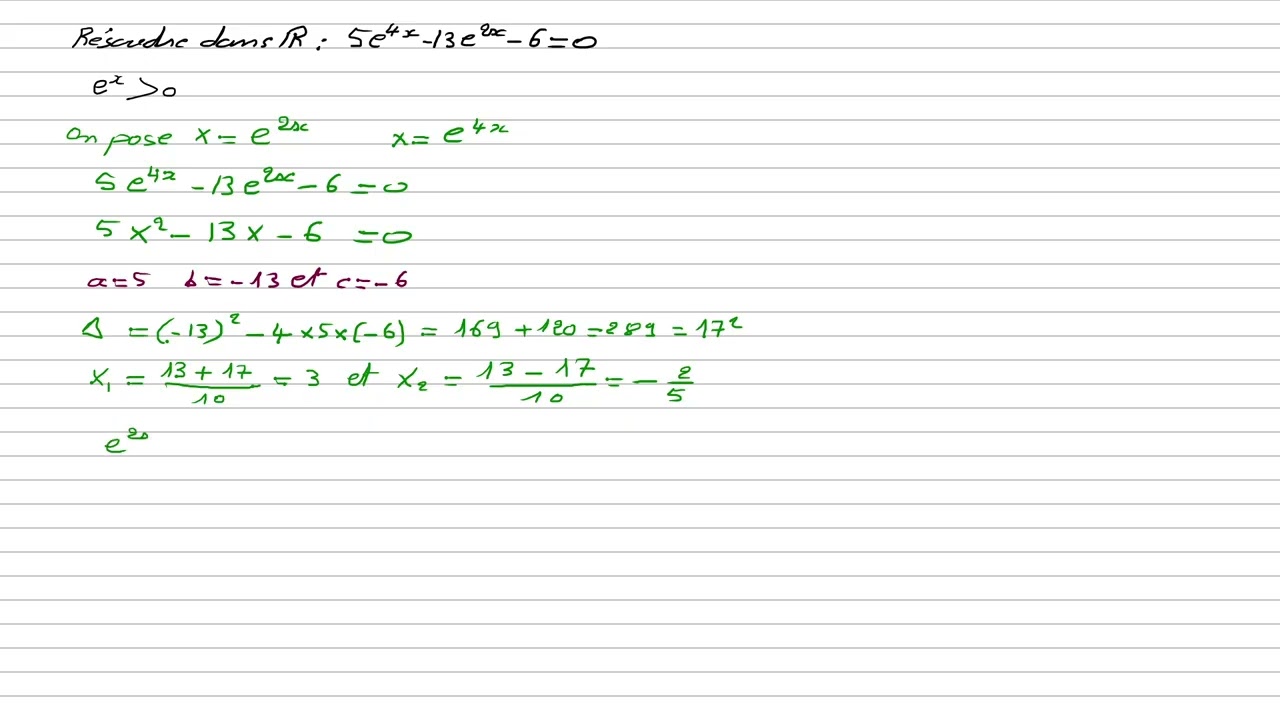 Résoudre dans ℝ : 5e⁴ˣ - 13e²ˣ - 6 = 0
eˣ > 0
On pose X = e²ˣ X = e⁴ˣ
5e⁴ˣ - 13e²ˣ - 6 = 0
5X² - 13X - 6 = 0
a = 5 b = -13 et c = -6
Δ = (-13)² - 4×5×(-6) = 169 + 120 = 289 = 17²
X₁ = (13 + 17)/10 = 3 et X₂ = (13 - 17)/10 = - 2/5
e²